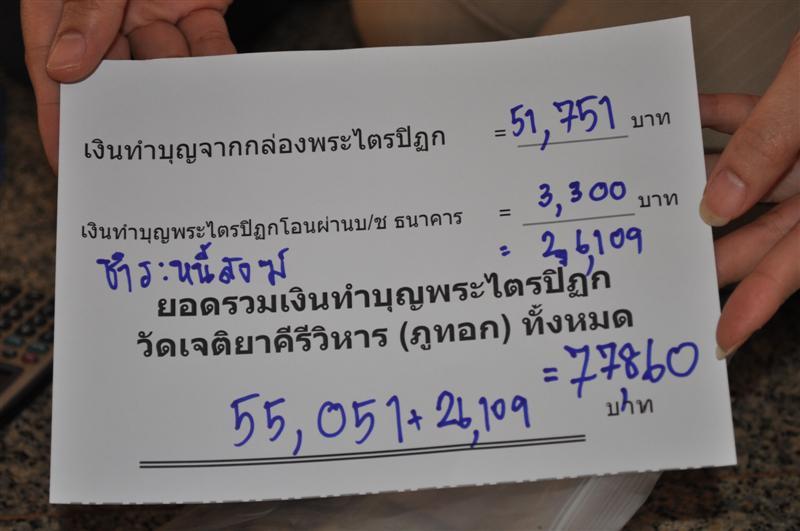 เงินทำบุญจากกล่องพระไตรปิฏก = 51,751 บาท
เงินทำบุญพระไตรปิฏกโอนผ่านบ/ช ธนาคาร = 3,300 บาท
ชำระหนี้สงฆ์ = 26,109
ยอดรวมเงินทำบุญพระไตรปิฏก
วัดเจติยาคีรีวิหาร (ภูทอก) ทั้งหมด
55,051 + 26,109 = 77,860
บาท